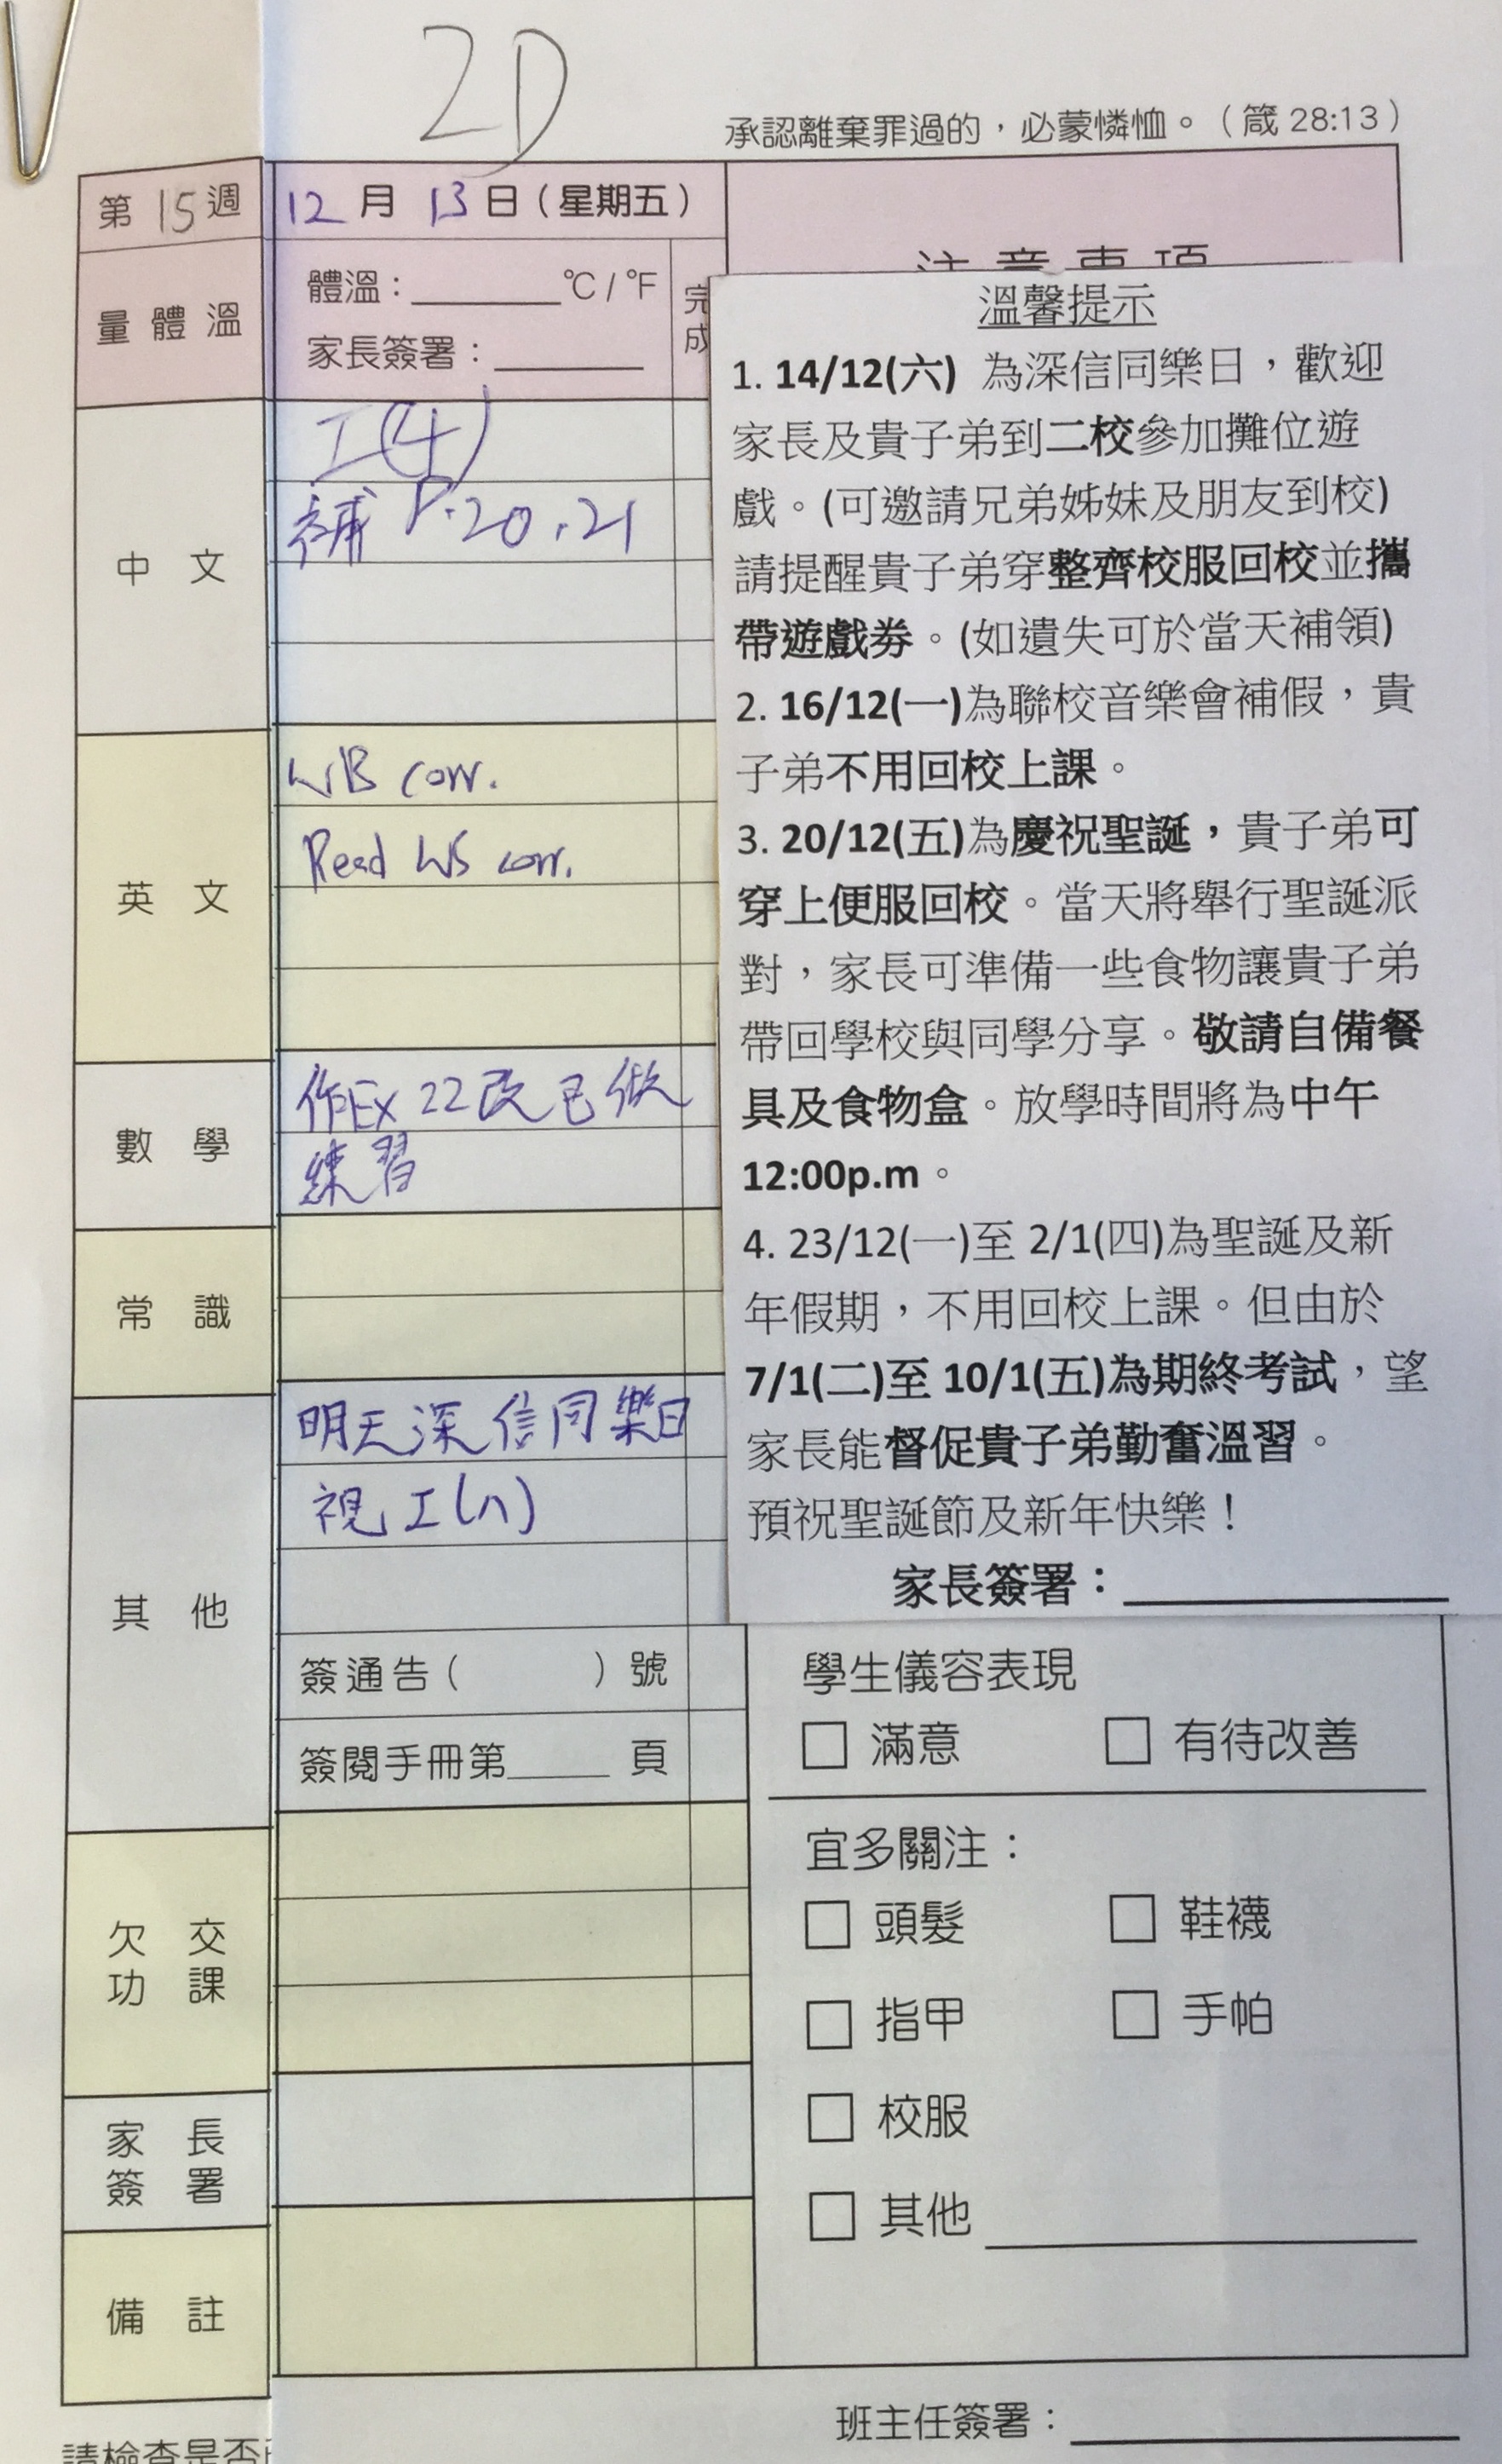 2D
承認離棄罪過的，必蒙憐恤。（箴 28:13）
第 15 週
12 月 13 日（星期五）
量體溫
體溫：______℃/℉
家長簽署：______
完成
注意事項
中文
工(十)
補 P.20,21
英文
WB corr.
Read WS corr.
數學
作Ex 22改已做
練習
常識
其他
明天深信同樂日
視工(八)
簽通告（ ）號
簽閱手冊第____頁
欠交功課
家長簽署
備註
溫馨提示
1. 14/12(六) 為深信同樂日，歡迎
家長及貴子弟到二校參加攤位遊
戲。(可邀請兄弟姊妹及朋友到校)
請提醒貴子弟穿整齊校服回校並攜
帶遊戲券。(如遺失可於當天補領)
2. 16/12(一)為聯校音樂會補假，貴
子弟不用回校上課。
3. 20/12(五)為慶祝聖誕，貴子弟可
穿上便服回校。當天將舉行聖誕派
對，家長可準備一些食物讓貴子弟
帶回學校與同學分享。敬請自備餐
具及食物盒。放學時間將為中午
12:00p.m。
4. 23/12(一)至 2/1(四)為聖誕及新
年假期，不用回校上課。但由於
7/1(二)至 10/1(五)為期終考試，望
家長能督促貴子弟勤奮溫習。
預祝聖誕節及新年快樂！
家長簽署：______
學生儀容表現
□ 滿意 □ 有待改善
宜多關注：
□ 頭髮 □ 鞋襪
□ 指甲 □ 手帕
□ 校服
□ 其他______
班主任簽署：______
請檢查是否